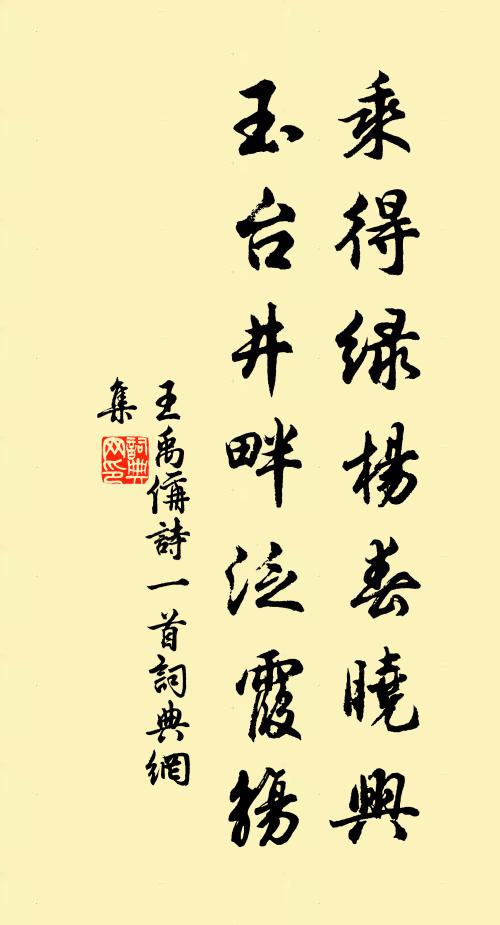 乘得绿楊春曉興
玉台井畔泛霞觴
王禹偁詩一首詞典網
集
詞典
网印